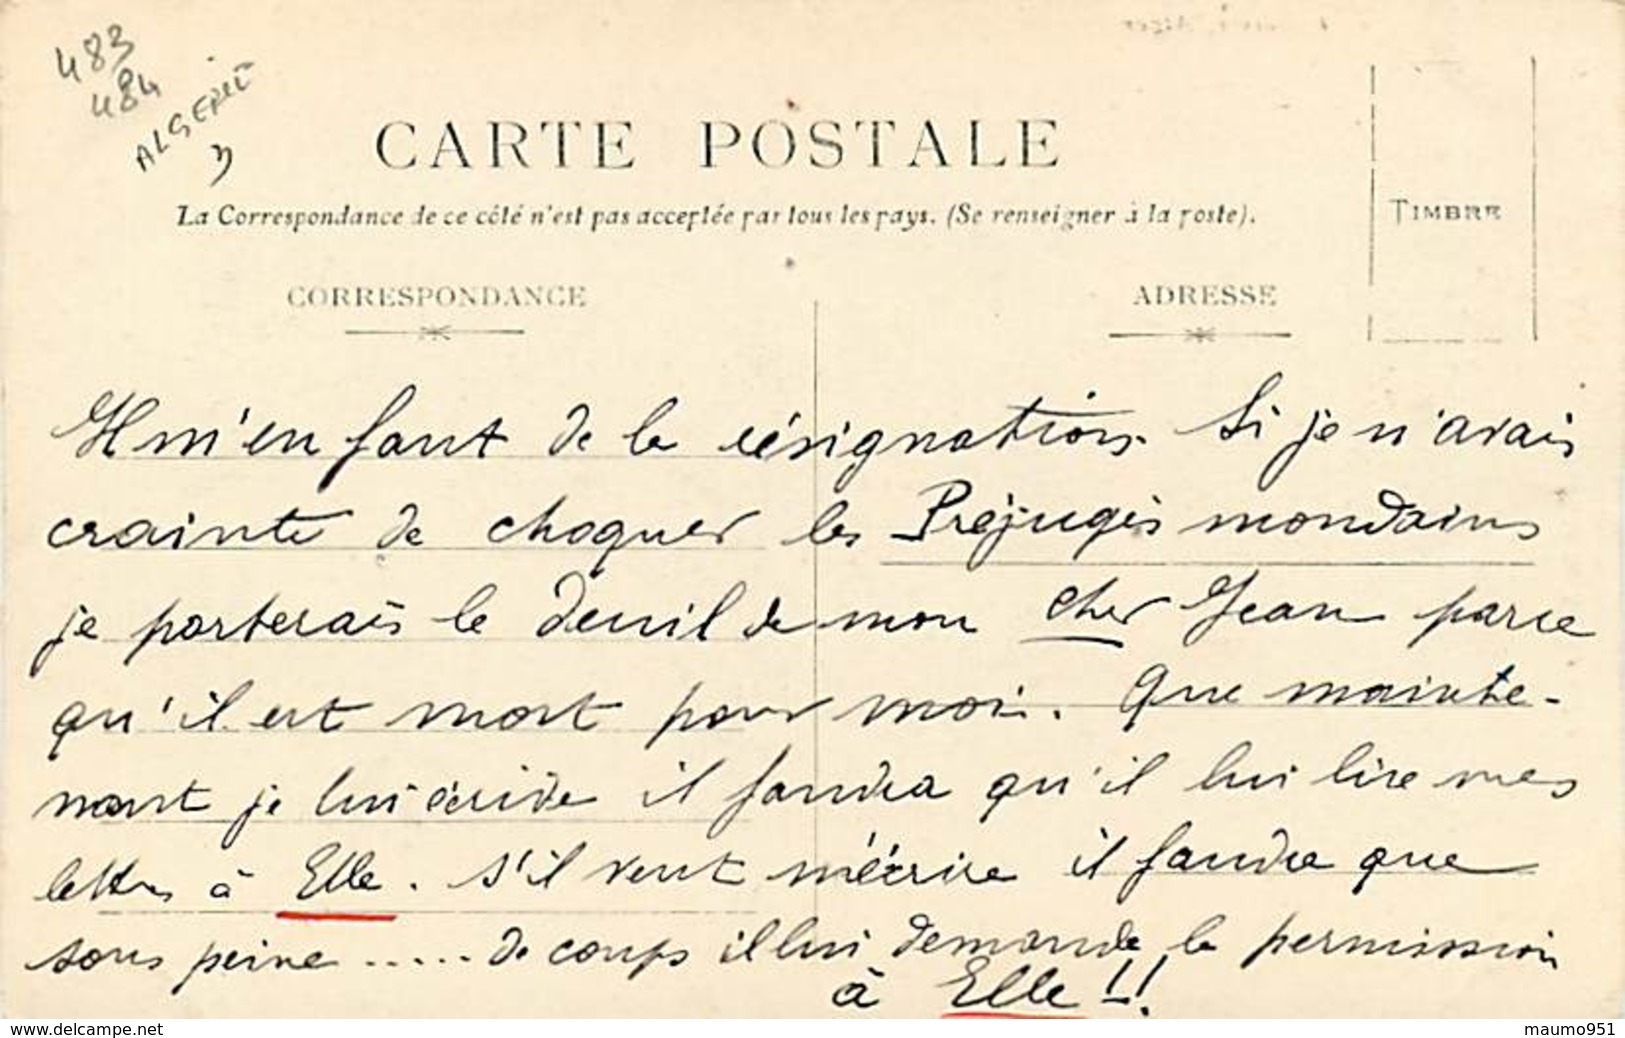 483
484
ALGERIE
3
CARTE POSTALE
La Correspondance de ce côté n'est pas acceptée par tous les pays. (Se renseigner à la poste).
TIMBRE
CORRESPONDANCE
ADRESSE
Il m'en faut de la résignation. Si je n'avais
crainte de choquer les Préjugés mondains
je porterais le deuil de mon cher Jean parce
qu'il est mort pour moi. Que mainte-
nant je lui écrive il faudra qu'il lui lire mes
lettres à Elle. S'il veut m'écrire il faudra que
sous peine ..... de coups il lui demande la permission
à Elle !!
www.delcampe.net
maumo951